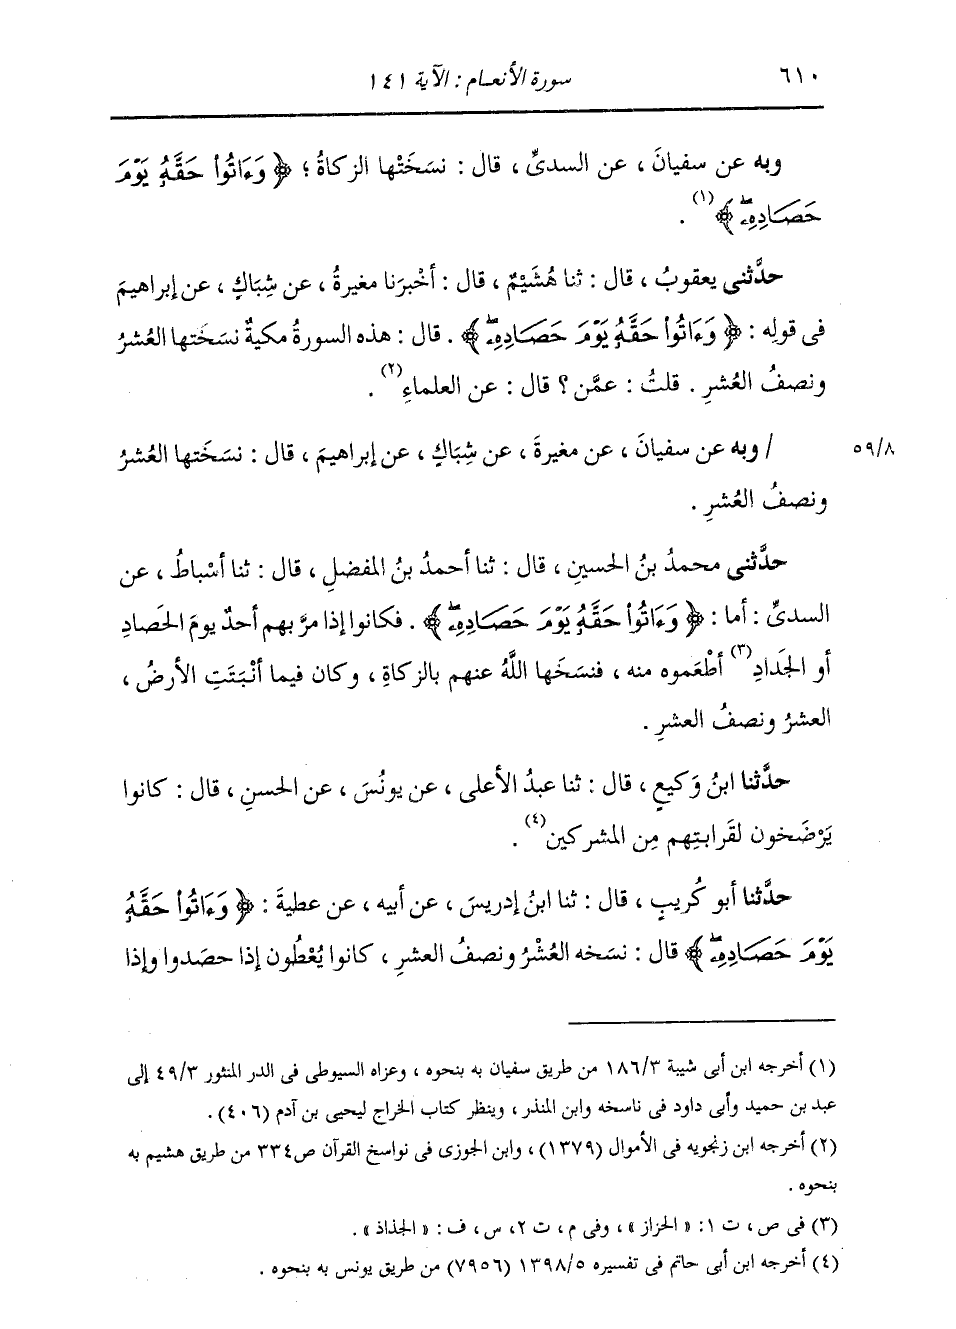 ٦١٠ سورة الأنعام : الآية ١٤١
وبه عن سفيانَ ، عن السدىِّ ، قال : نسَخَتْها الزكاةُ ؛ ﴿ وَءَاتُوا۟ حَقَّهُۥ يَوْمَ
حَصَادِهِۦۖ ﴾(١) .
حدَّثنى يعقوبُ ، قال : ثنا هُشَيْمٌ ، قال : أخْبرَنا مغيرةُ ، عن شِبَاكٍ ، عن إبراهيمَ
فى قولِه : ﴿ وَءَاتُوا۟ حَقَّهُۥ يَوْمَ حَصَادِهِۦۖ ﴾ . قال : هذه السورةُ مكيةٌ نسَخَتها العُشرُ
ونصفُ العُشرِ . قلتُ : عمَّن ؟ قال : عن العلماءِ(٢) .
٥٩/٨ / وبه عن سفيانَ ، عن مغيرةَ ، عن شِبَاكٍ ، عن إبراهيمَ ، قال : نسَخَتها العُشرُ
ونصفُ العُشرِ .
حدَّثنى محمدُ بنُ الحسينِ ، قال : ثنا أحمدُ بنُ المفضلِ ، قال : ثنا أسْباطُ ، عن
السدىِّ : أما : ﴿ وَءَاتُوا۟ حَقَّهُۥ يَوْمَ حَصَادِهِۦۖ ﴾ . فكانوا إذا مرَّ بهم أحدٌ يومَ الحَصادِ
أو الجَدَادِ(٣) أطْعَموه منه ، فنسَخَها اللَّهُ عنهم بالزكاةِ ، وكان فيما أنْبَتَتِ الأرضُ ،
العشرُ ونصفُ العشرِ .
حدَّثنا ابنُ وَكيعٍ ، قال : ثنا عبدُ الأعلى ، عن يونُسَ ، عن الحسنِ ، قال : كانوا
يَرْضَخون لقَرابتِهم مِن المشركين(٤) .
حدَّثنا أبو كُريبٍ ، قال : ثنا ابنُ إدريسَ ، عن أبيه ، عن عطيةَ : ﴿ وَءَاتُوا۟ حَقَّهُۥ
يَوْمَ حَصَادِهِۦۖ ﴾ قال : نسَخه العُشْرُ ونصفُ العشرِ ، كانوا يُعْطُون إذا حصَدوا وإذا
(١) أخرجه ابن أبى شيبة ١٨٦/٣ من طريق سفيان به بنحوه ، وعزاه السيوطى فى الدر المنثور ٤٩/٣ إلى
عبد بن حميد وأبى داود فى ناسخه وابن المنذر ، وينظر كتاب الخراج ليحيى بن آدم (٤٠٦) .
(٢) أخرجه ابن زنجويه فى الأموال (١٣٧٩) ، وابن الجوزى فى نواسخ القرآن ص٣٣٤ من طريق هشيم به
بنحوه .
(٣) فى ص ، ت ١: « الحزاز » ، وفى م ، ت ٢، س ، ف : « الجذاذ » .
(٤) أخرجه ابن أبى حاتم فى تفسيره ١٣٩٨/٥ (٧٩٥٦) من طريق يونس به بنحوه .